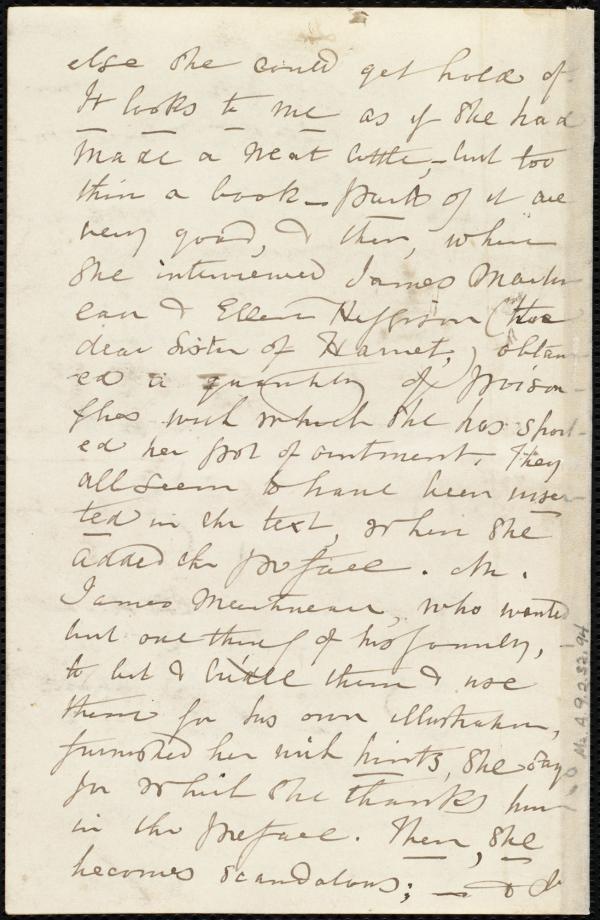 else she could get hold of.
It looks to me as if she had
made a neat little, - but too
thin a book - parts of it are
very good, & then, when
she interviewed James Martin
eau & Ellen Higginson (the
dear sister of Harriet,) obtain
ed a quantity of poison
flies with which she has spoil-
ed her pot of ointment. They
all seem to have been inser-
ted in the text, when she
added the preface. Mr.
James Martineau, who wanted
but one thing of his family, -
to cut & them & use
them for his own illustration,
furnished her with hints, she says
for which she thanks him
in the preface. Then, she
becomes scandalous; - & I
Ms. A. 9. 2. 32. 94